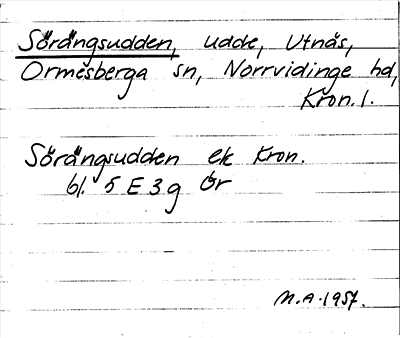 Sörängsudden, udde, Utnäs,
Ormesberga sn, Norrvidinge hd,
Kron. l.
Sörängsudden ek Kron.
bl. 5 E 3 g Ör
M.A. 1957.